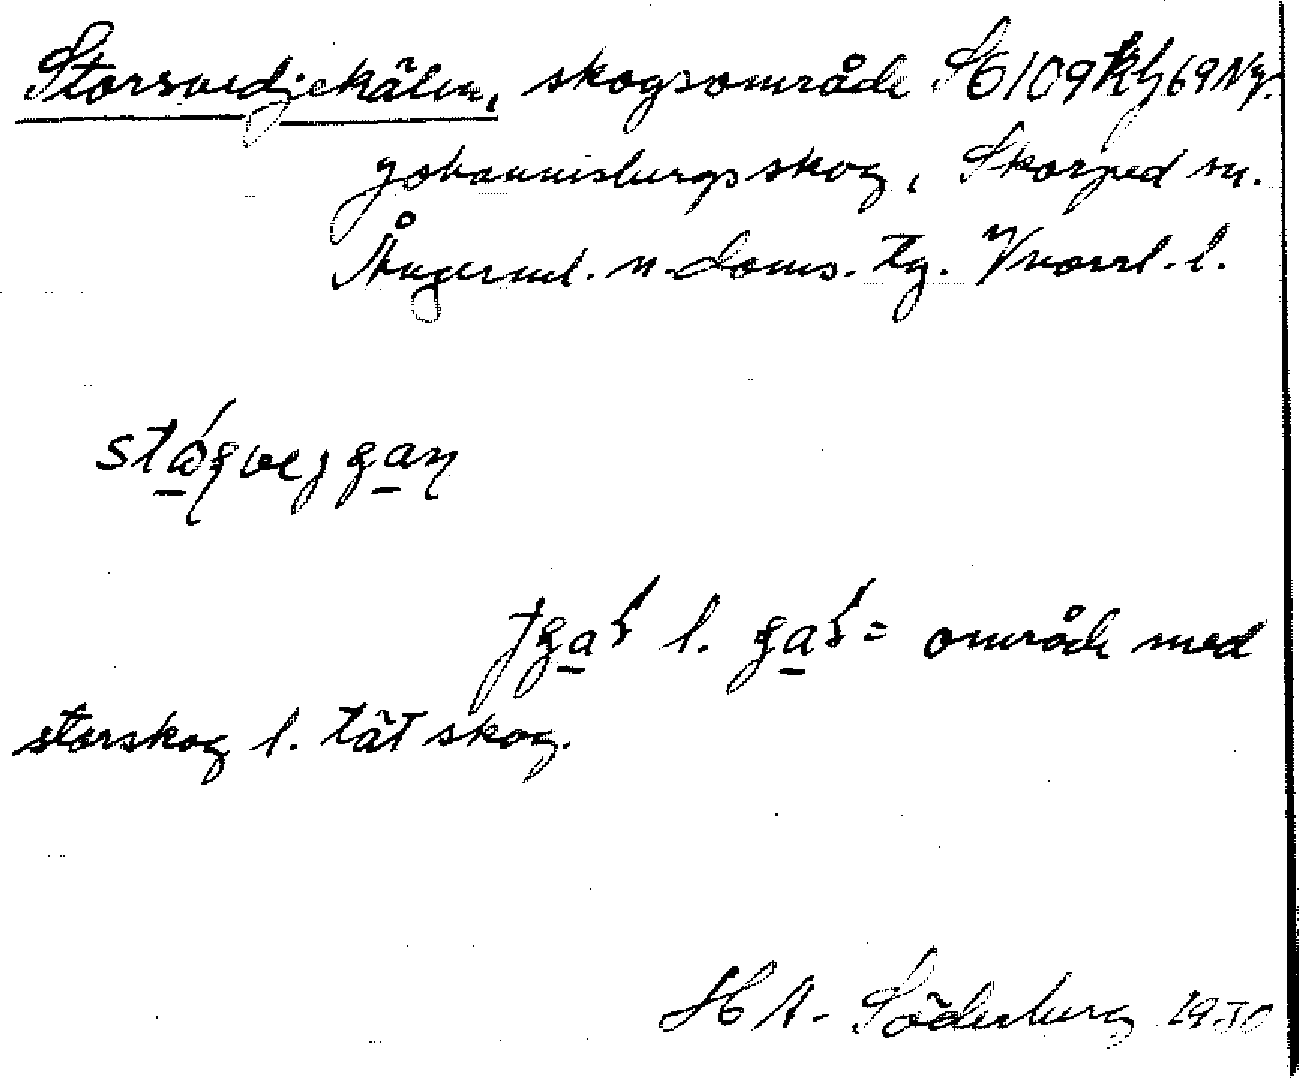 Storsvedjekälen, skogsområde St 109 Kf 69 Ny.
Johannisbergsskog, Skorped sn.
Ångerml. n. doms. tg. Vnorrl. l.
l. = område med
storskog l. tät skog.
H A. Söderberg 1930